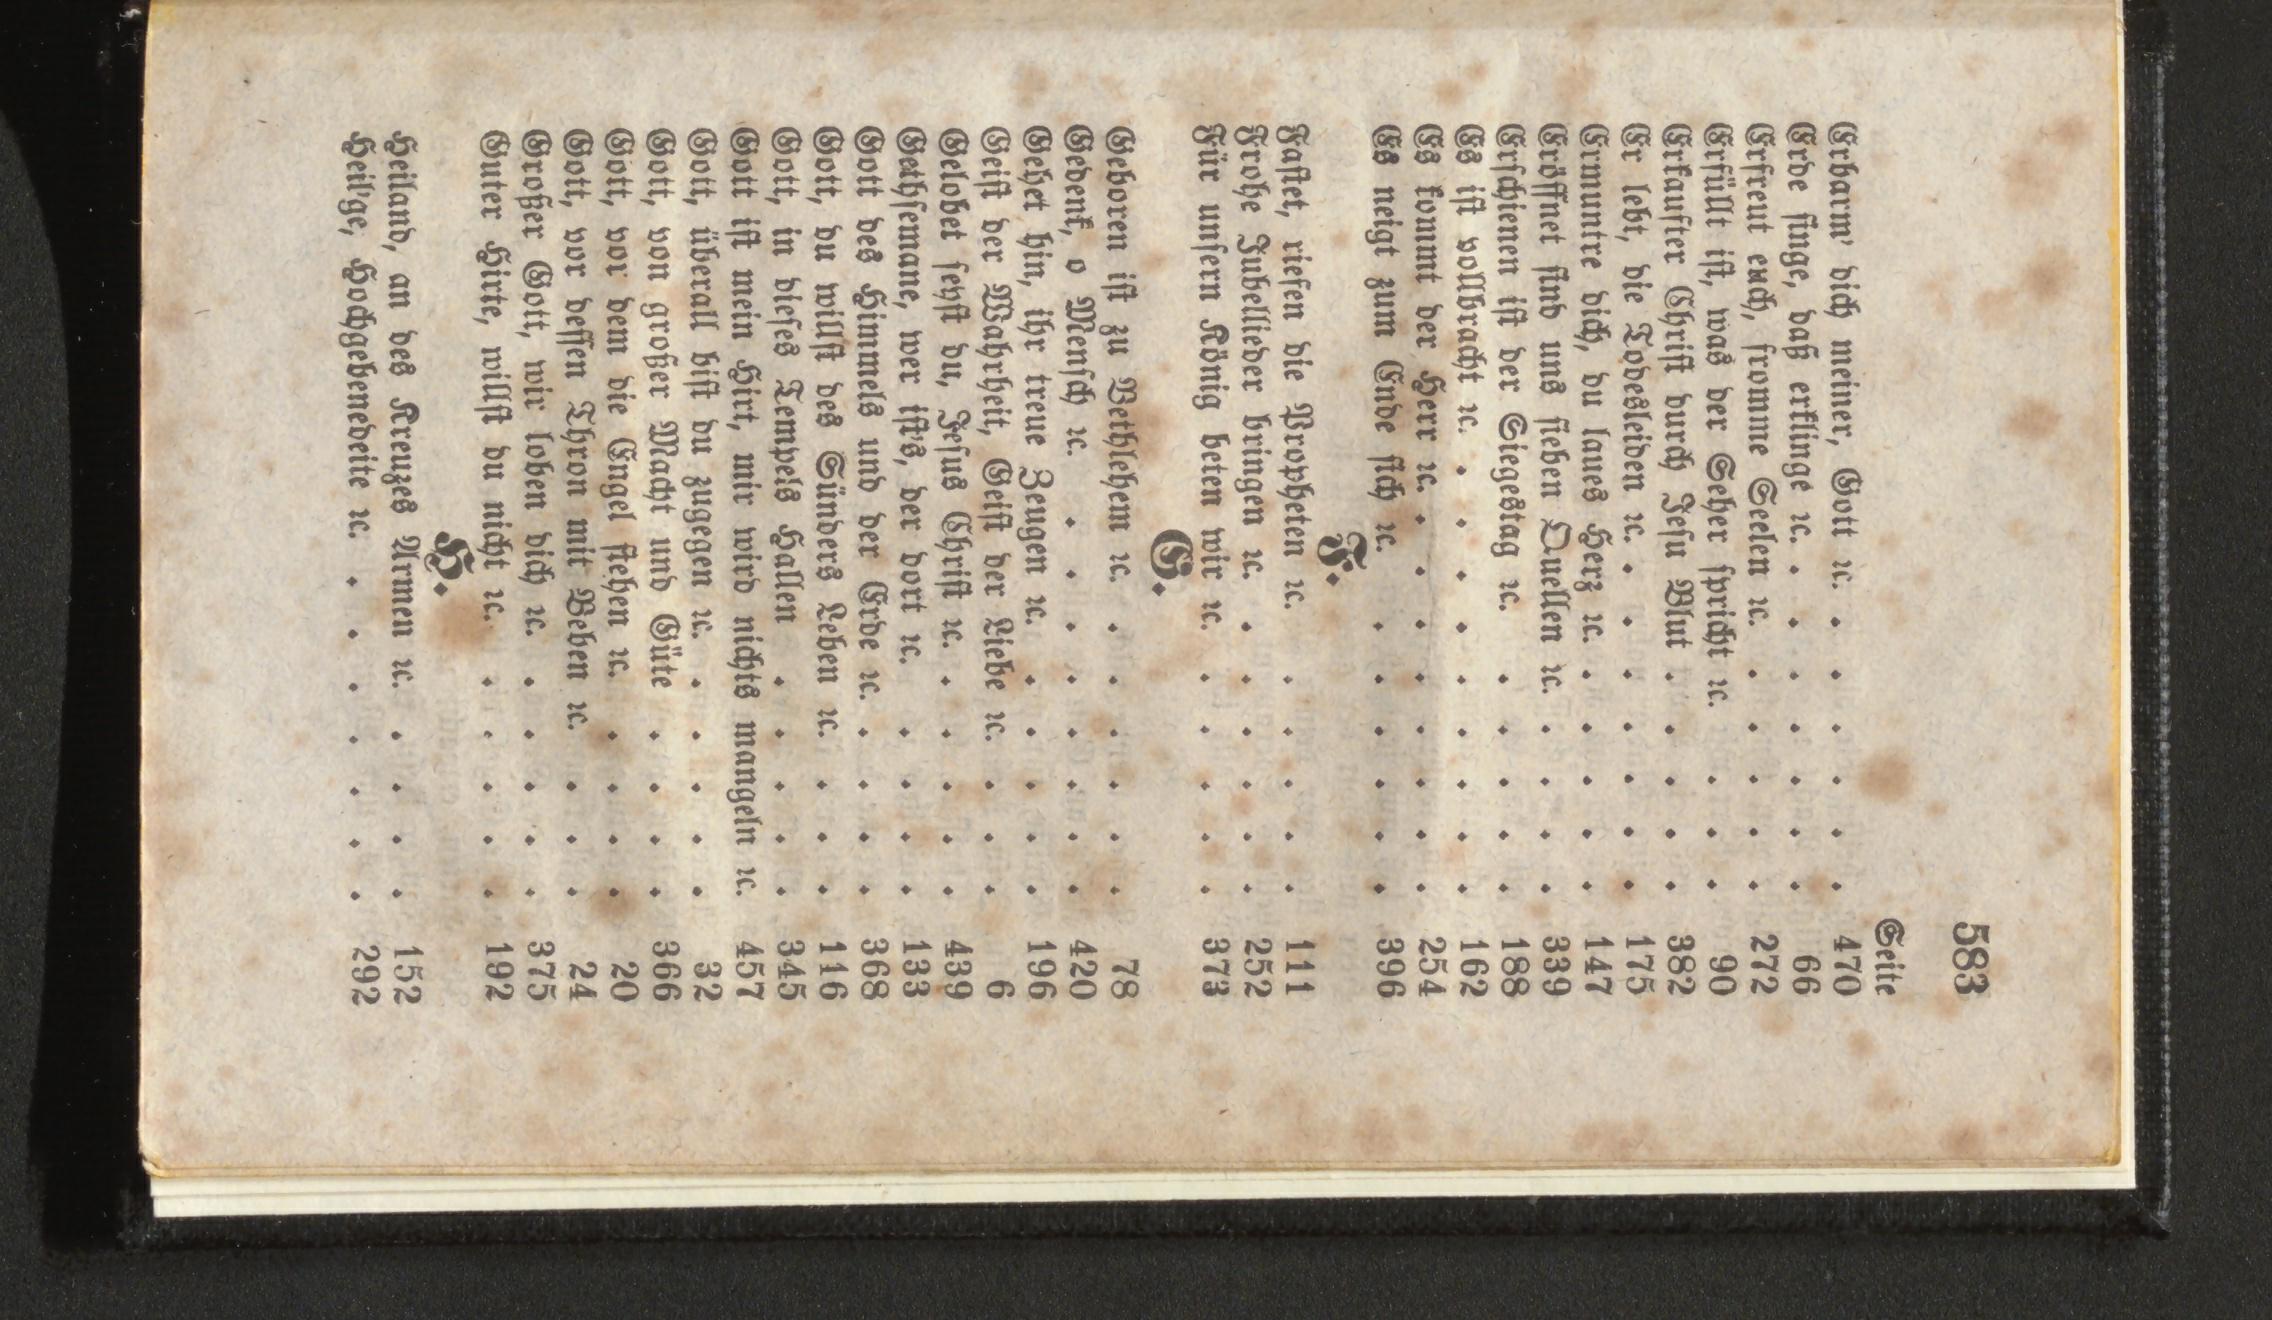 583
Seite
Erbarm' dich meiner, Gott ꝛc. . . . . . . 470
Erde singe, daß erklinge ꝛc. . . . . . . . 66
Erfreut euch, fromme Seelen ꝛc. . . . . . 272
Erfüllt ist, was der Seher spricht ꝛc. . . . . 90
Erkaufter Christ durch Jesu Blut . . . . . 382
Er lebt, die Todesleiden ꝛc. . . . . . . . 175
Ermuntre dich, du laues Herz ꝛc. . . . . . 147
Eröffnet sind uns sieben Quellen ꝛc. . . . . 339
Erschienen ist der Siegestag ꝛc. . . . . . 188
Es ist vollbracht ꝛc. . . . . . . . . . 162
Es kommt der Herr ꝛc. . . . . . . . . 254
Es neigt zum Ende sich ꝛc. . . . . . . 396
F.
Fastet, riefen die Propheten ꝛc. . . . . . 111
Frohe Jubellieder bringen ꝛc. . . . . . . 252
Für unsern König beten wir ꝛc. . . . . . 373
G.
Geboren ist zu Bethlehem ꝛc. . . . . . . 78
Gedenk', o Mensch ꝛc. . . . . . . . . 420
Gehet hin, ihr treue Zeugen ꝛc. . . . . . 196
Geist der Wahrheit, Geist der Liebe ꝛc. . . . 6
Gelobet seyst du, Jesus Christ ꝛc. . . . . . 439
Gethsemane, wer ist's, der dort ꝛc. . . . . 133
Gott des Himmels und der Erde ꝛc. . . . . 368
Gott, du willst des Sünders Leben ꝛc. . . . 116
Gott, in dieses Tempels Hallen . . . . . 345
Gott ist mein Hirt, mir wird nichts mangeln ꝛc. 457
Gott, überall bist du zugegen ꝛc. . . . . . 32
Gott, von großer Macht und Güte . . . . 366
Gott, vor dem die Engel stehen ꝛc. . . . . 20
Gott, vor dessen Thron mit Beben ꝛc. . . . 24
Großer Gott, wir loben dich ꝛc. . . . . . 375
Guter Hirte, willst du nicht ꝛc. . . . . . 192
H.
Heiland, an des Kreuzes Armen ꝛc. . . . . 152
Heil'ge, Hochgebenedeite ꝛc. . . . . . . . 292